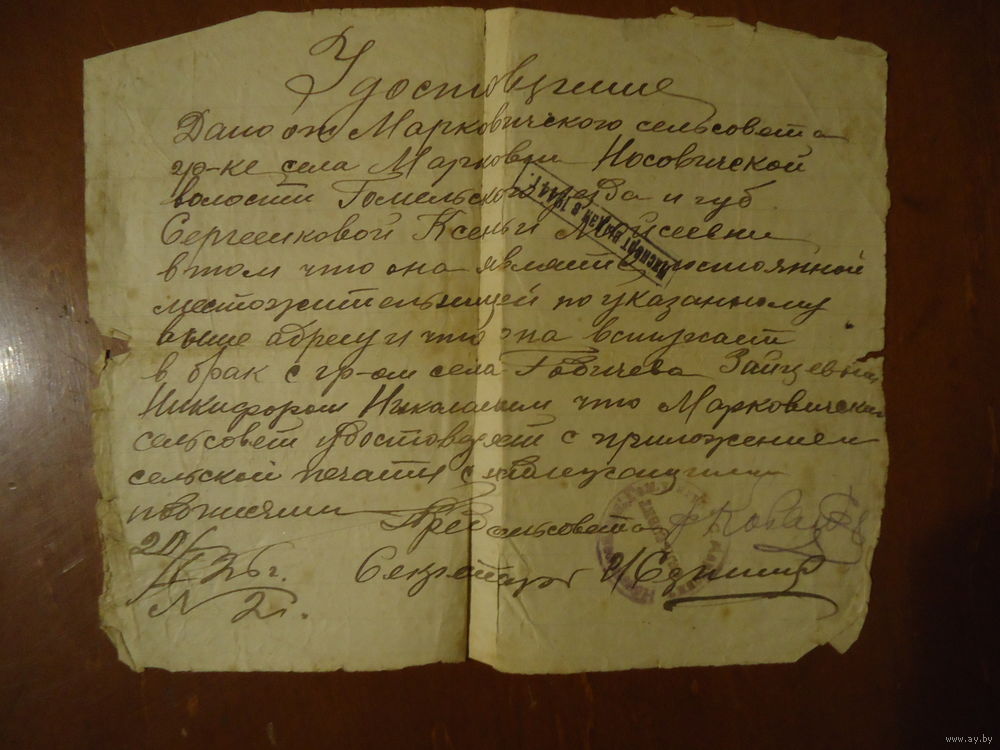 Удостоверение
Дано от Марковичского сельсовета
гр-ке села Марковичи Носовичской
волости Гомельского уезда и губ
Сергеенковой Ксеньи Мойсеевны
в том что она является постоянной
местожительницей по указанному
выше адресу и что она вступает
в брак с гр-ом села Глыбичева Зайцевым
Никифором Николаевым что Марковический
сельсовет удостоверяет с приложением
сельской печати с надлежащими
подписями
Пред сельсовета
20/IX 26 г.
Секретарь
N 2.
Паспорт выдан 8 1944 г.
www.ay.by